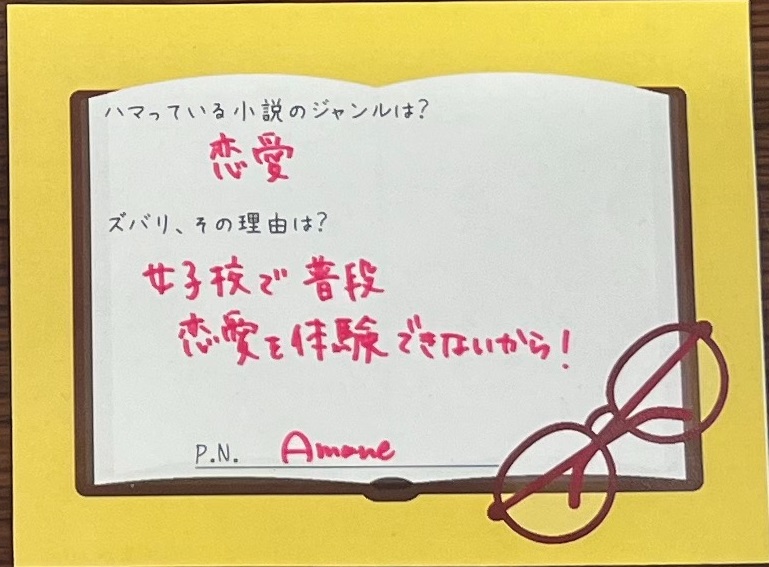 ハマっている小説のジャンルは?
恋愛
ズバリ、その理由は?
女子校で普段
恋愛を体験できないから!
P.N. Amane